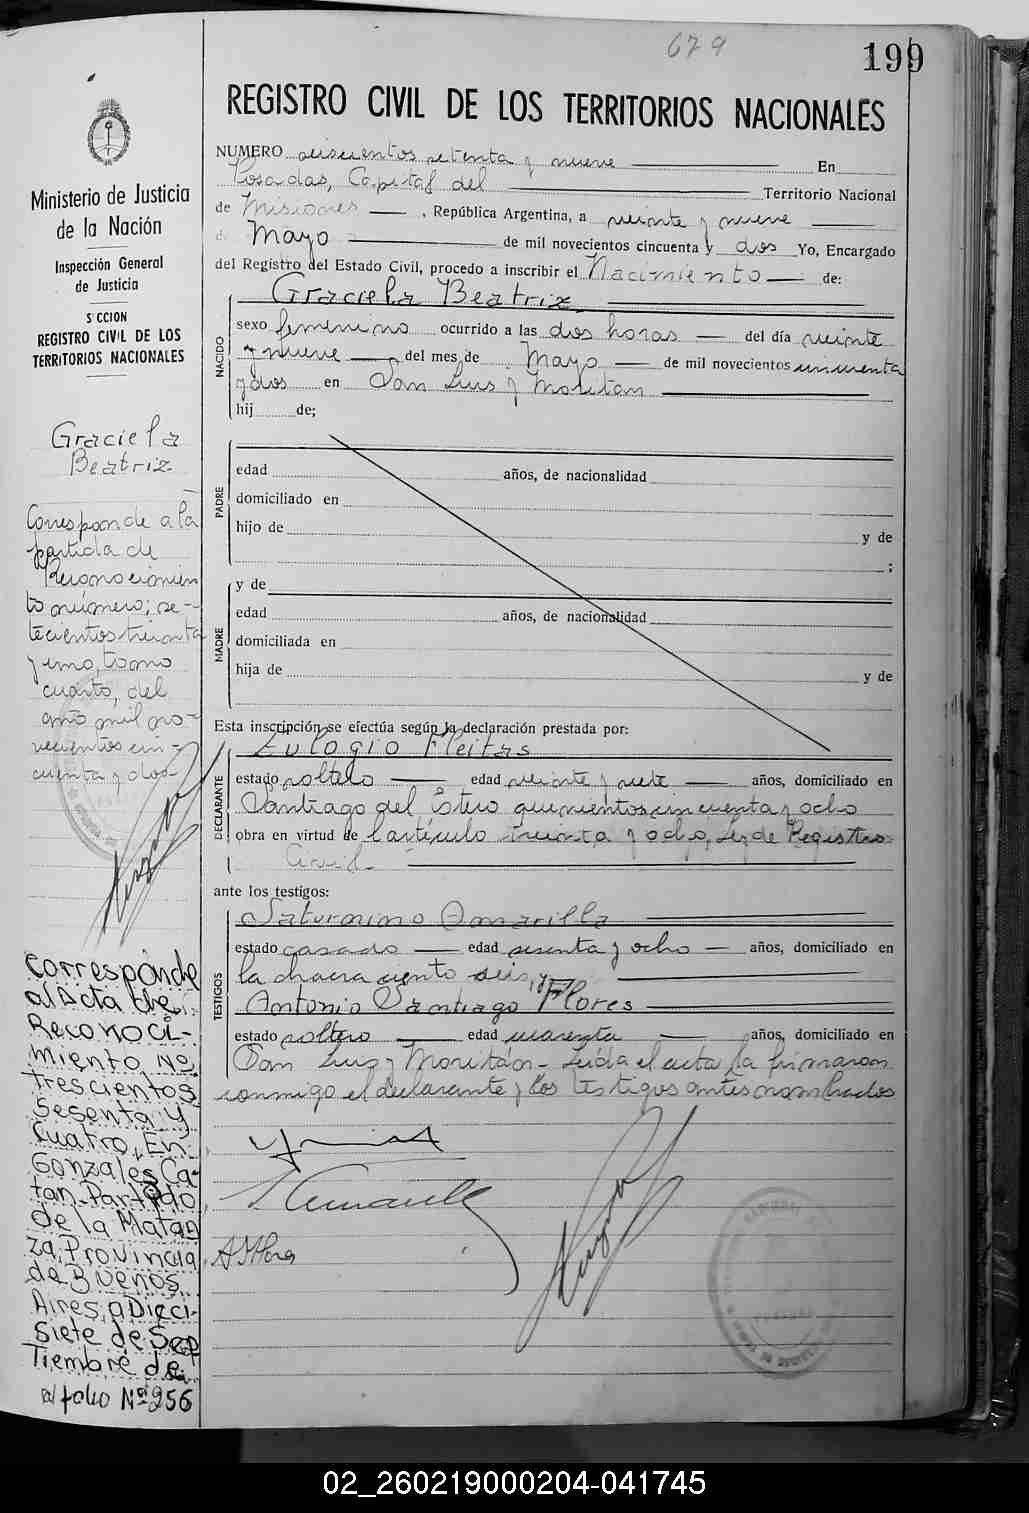 679
199
REGISTRO CIVIL DE LOS TERRITORIOS NACIONALES
Ministerio de Justicia
de la Nación
Inspección General
de Justicia
SECCION
REGISTRO CIVIL DE LOS
TERRITORIOS NACIONALES
Graciela
Beatriz
Corresponde a la
partida de
Reconocimien
to número; se-
tecientos treinta
y uno, tomo
cuarto, del
año mil no-
vecientos cin-
cuenta y dos-
Corresponde
al Acta de
Reconoci-
miento, No
trescientos
Sesenta y
Cuatro, En
Gonzales Ca-
tan-Partido
de la Matan
za, Provincia
de Buenos
Aires, a Dieci-
siete de Sep
Tiembre de
al folio Nº 256
NUMERO seiscientos setenta y nueve En
Posadas, Capital del Territorio Nacional
de Misiones , República Argentina, a veinte y nueve
de Mayo de mil novecientos cincuenta y dos Yo, Encargado
del Registro del Estado Civil, procedo a inscribir el Nacimiento de:
Graciela Beatriz
NACIDO
sexo femenino ocurrido a las dos horas del día veinte
y nueve del mes de Mayo de mil novecientos cincuenta
y dos en San Luis y Moritan
hij de;
PADRE
edad años, de nacionalidad
domiciliado en
hijo de y de
;
MADRE
y de
edad años, de nacionalidad
domiciliada en
hija de y de
Esta inscripción se efectúa según la declaración prestada por:
DECLARANTE
Eulogio Fleitas
estado soltero edad veinte y siete años, domiciliado en
Santiago del Estero quinientos cincuenta y ocho
obra en virtud de l artículo treinta y ocho, Ley de Registro
Civil-
ante los testigos:
TESTIGOS
Saturnino Amarilla
estado casado edad sesenta y ocho años, domiciliado en
la chacra ciento seis, y
Antonio Santiago Flores
estado soltero edad cuarenta años, domiciliado en
San Luis y Moritán- Leída el acta la firmaron
conmigo el declarante y los testigos antes nombrados
A S Flores
02_260219000204-041745